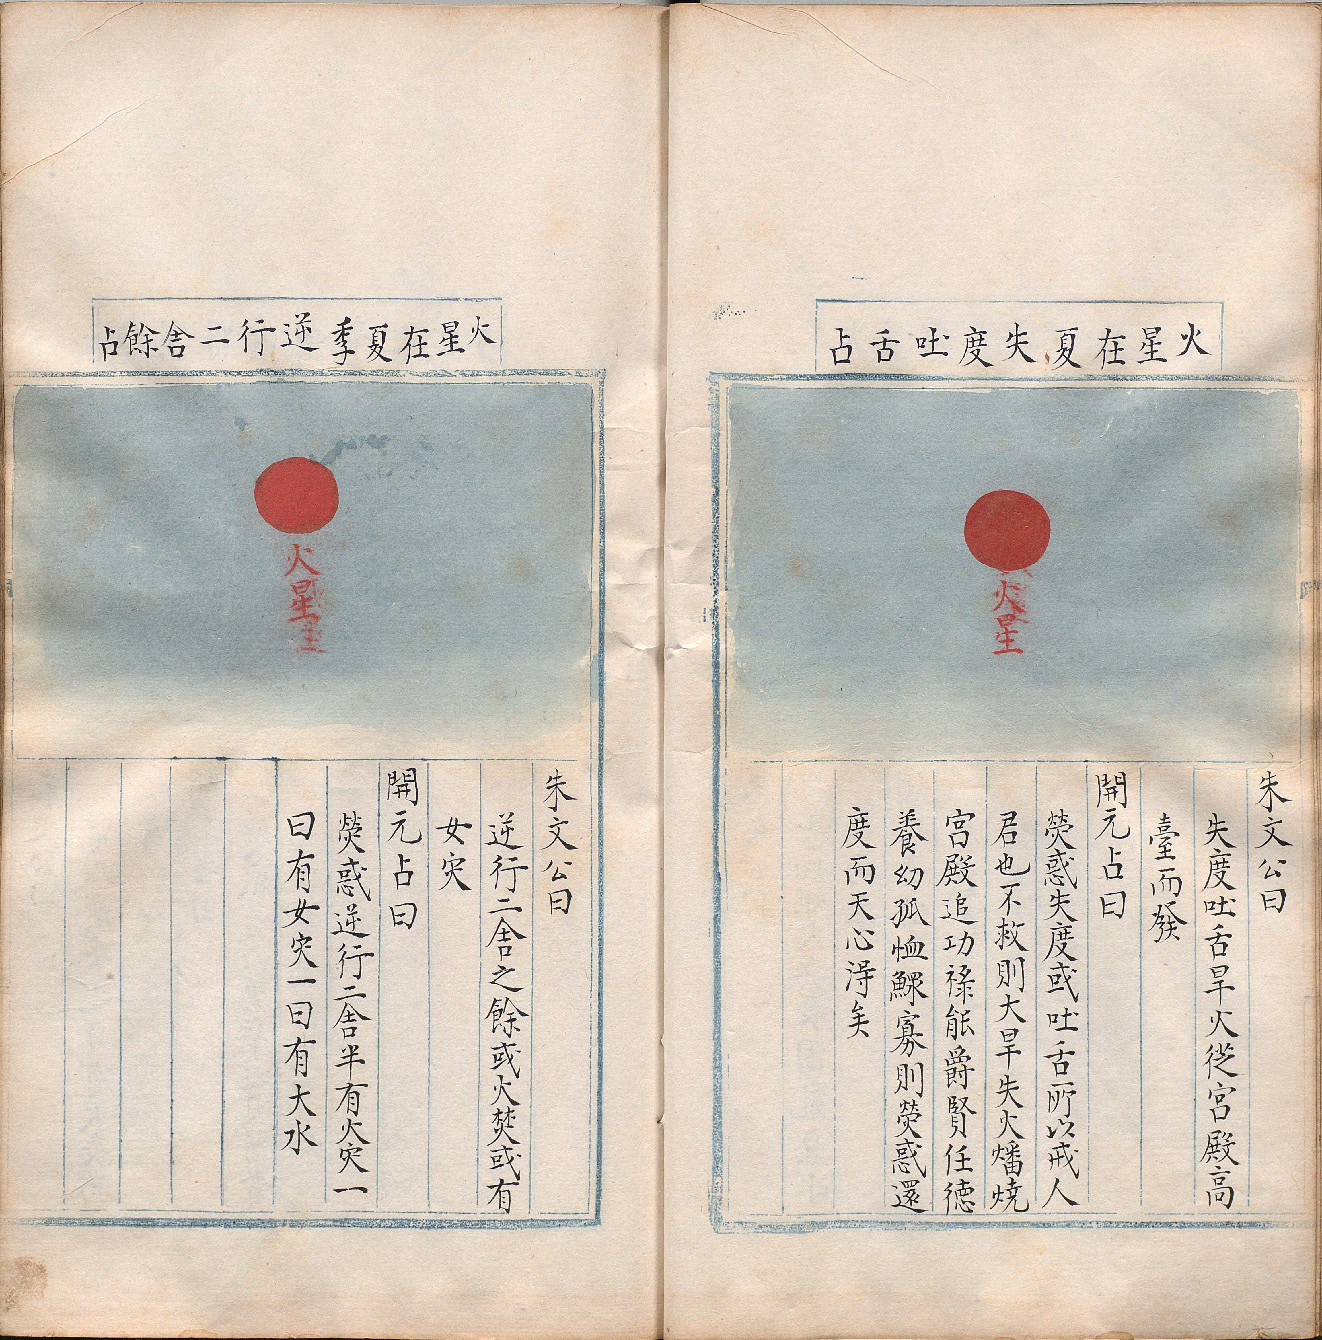 火星在夏失度吐舌占
火星
朱文公曰
失度吐舌旱火從宮殿高
臺而發
開元占曰
熒惑失度或吐舌所以戒人
君也不救則大旱失火燔燒
宮殿追功祿能爵賢任德
養幼孤恤鰥寡則熒惑還
度而天心淂矣
火星在夏季逆行二舍餘占
火星
朱文公曰
逆行二舍之餘或火焚或有
女灾
開元占曰
熒惑逆行二舍半有火灾一
曰有女灾一曰有大水